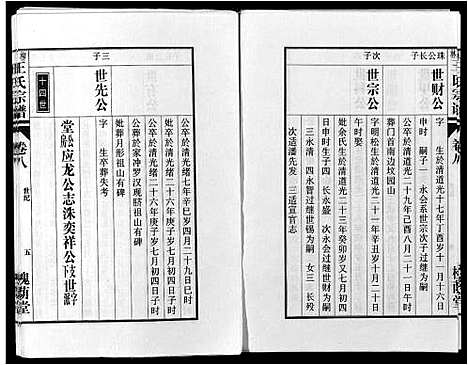 珠公長子
世财公
字 生於清道光十七年丁酉岁十一月十六日
时 嗣子一 永会系世宗次子过继为嗣
公卒於清光绪二十九年己酉八月二十一日
葬门首南边坟园山
次子
世宗公
字明松生於清道光二十年庚子岁十一月十一日
午时 娶
妣余氏生於清道光二十三年癸卯岁又七月初三
日申时生子四 长永盛 次永会过继世财为嗣
三永清 四永喜过继世锡为嗣 女三 长殁
次适潘先发 三适宣官志
公卒於清光绪七年辛巳岁四月二十九日巳时
妣卒於清光绪二十六年庚子岁七月初四日子时
公葬於家冲罗汉现脐祖山有碑
妣葬月形祖山有碑
三子
世先公
字 生卒葬失考
十四世
應龙公志洙奕祥公世
王氏宗谱
卷八
世纪
五
槐荫堂